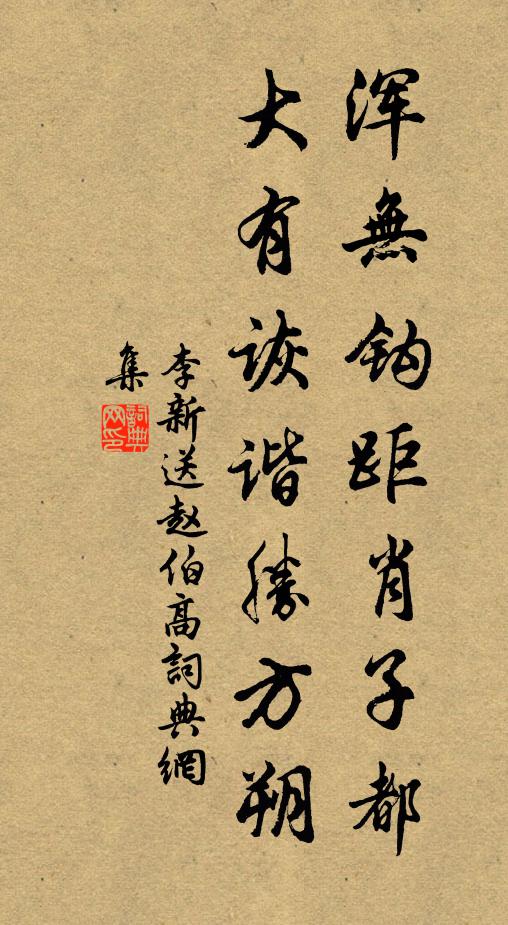 浑無钩距肖子都
大有诙谐勝方朔
李新送赵伯高詞典網
集
詞典网印